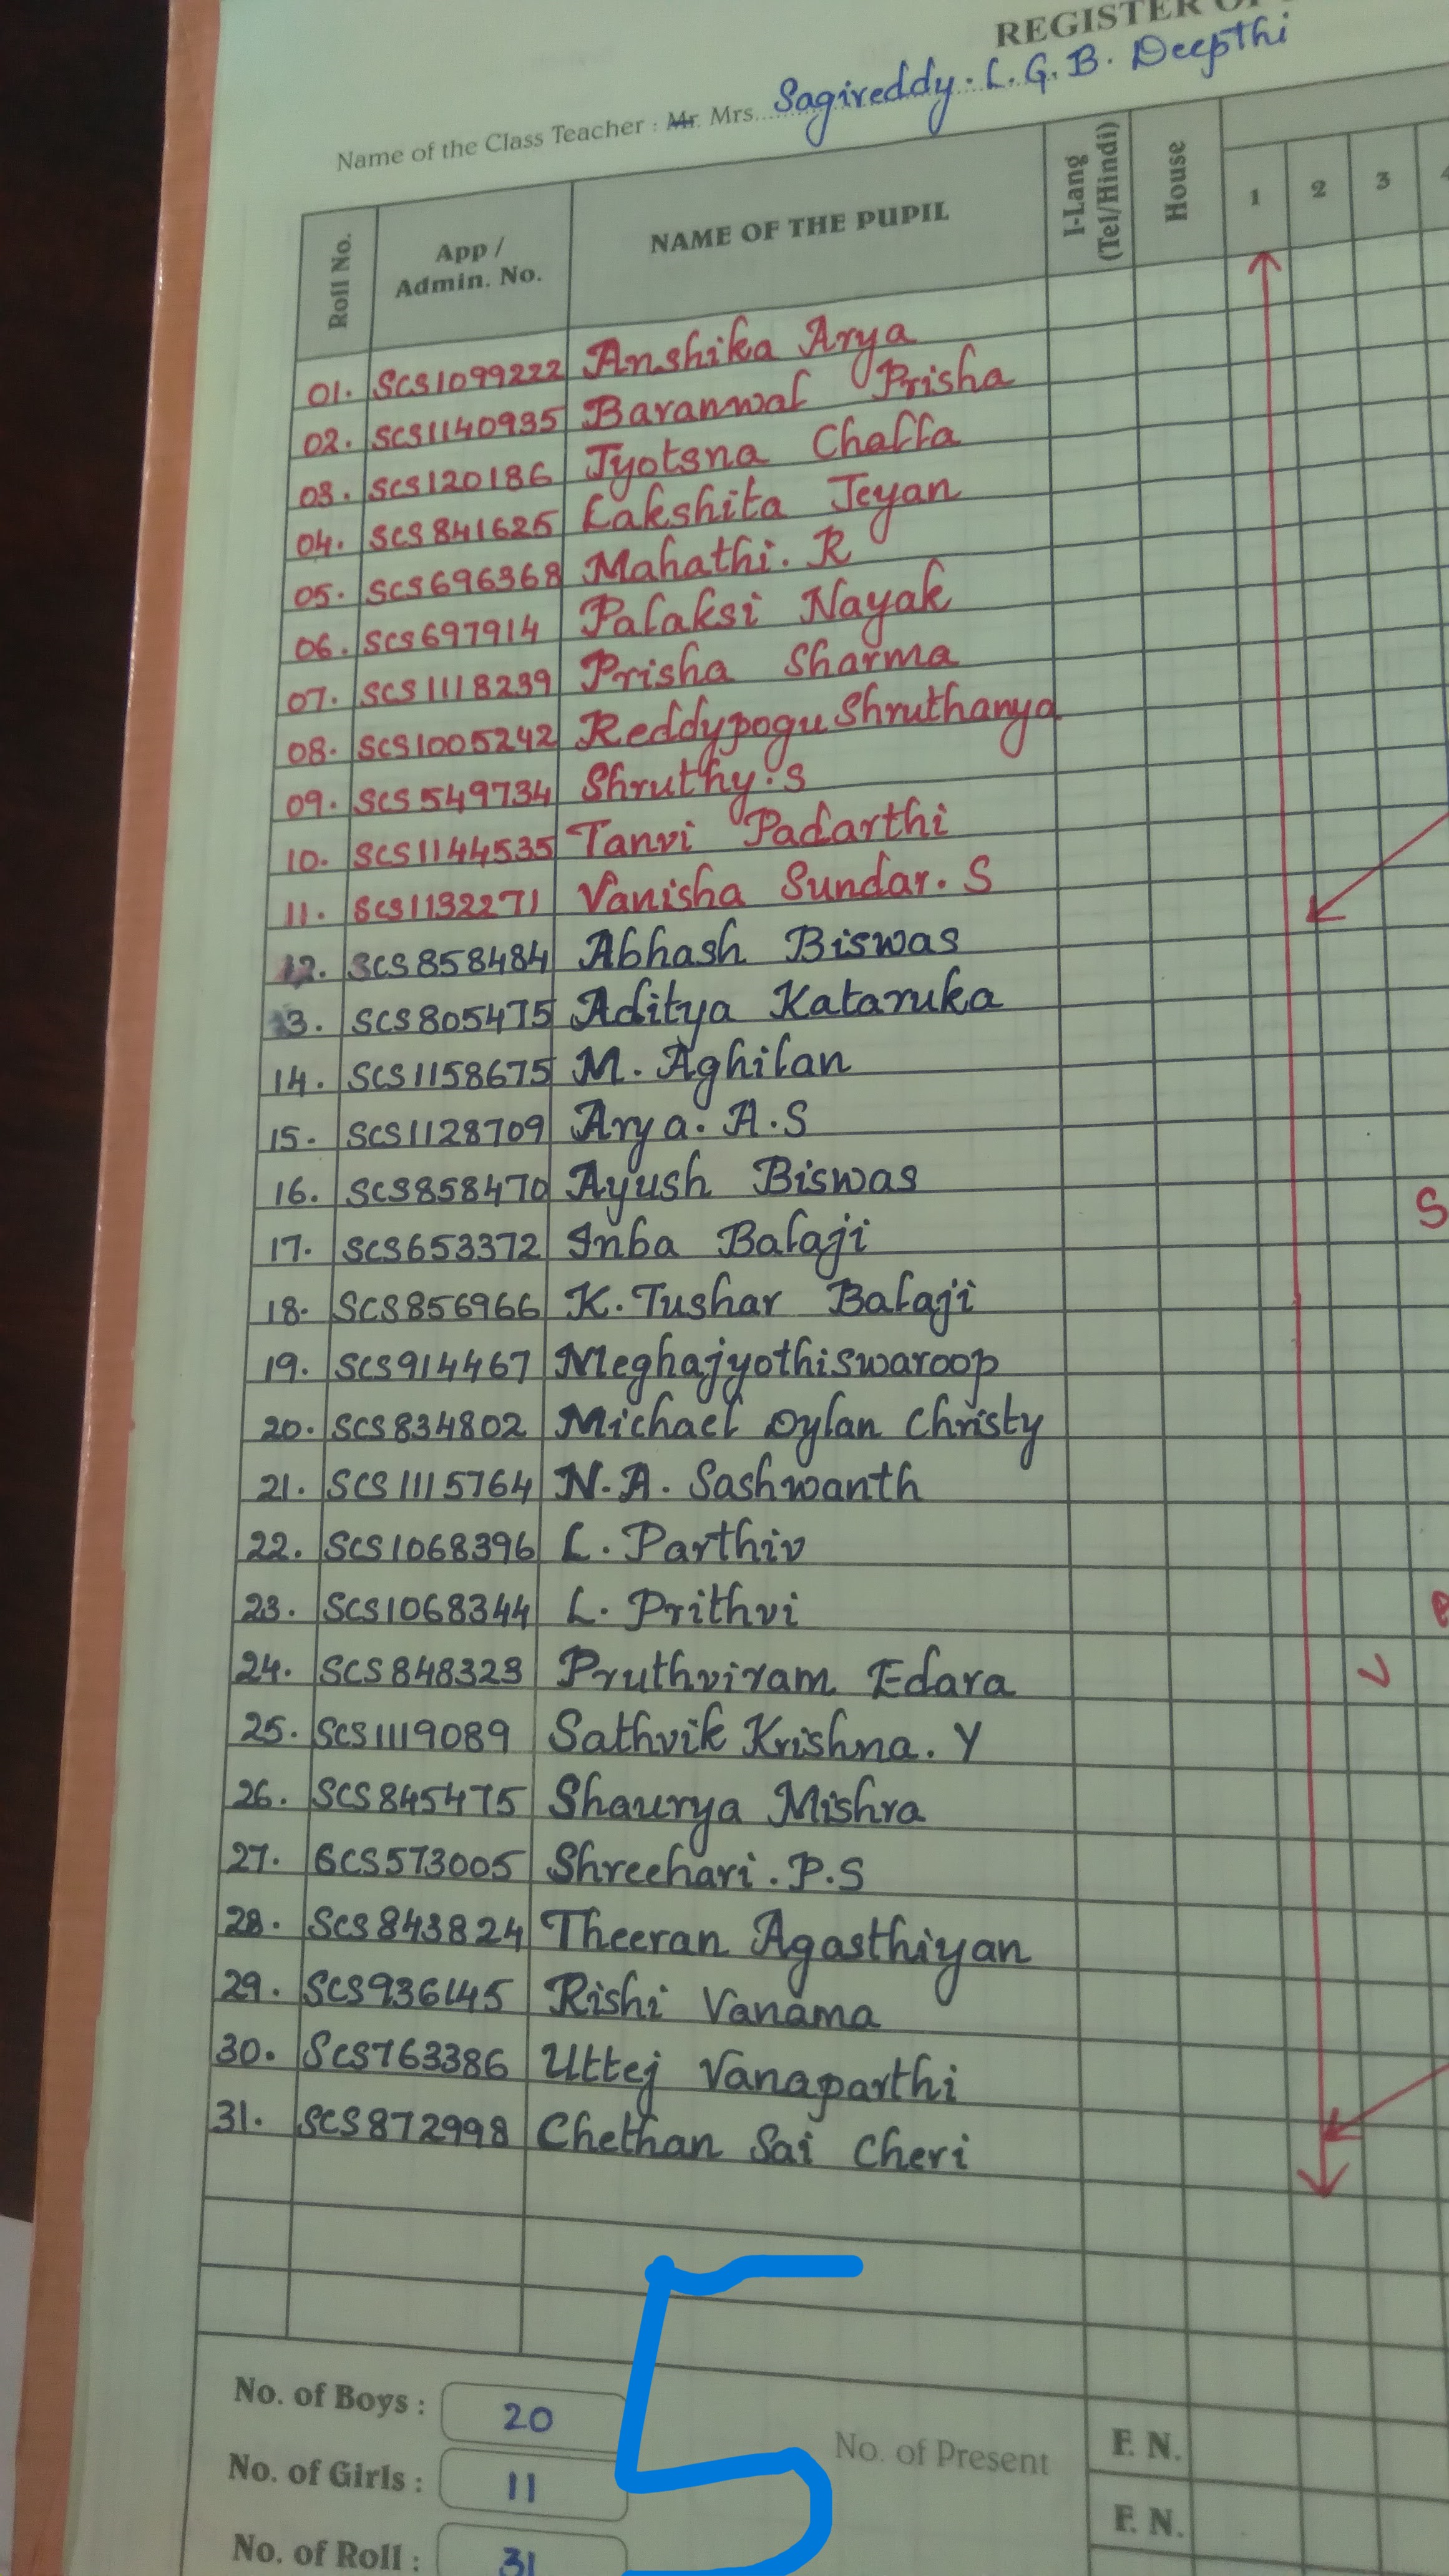 REGISTER OF
Name of the Class Teacher : Mr. Mrs. Sagireddy. L. G. B. Deepthi
Roll No. App / Admin. No. NAME OF THE PUPIL I-Lang (Tel/Hindi) House 1 2 3 4
01. SCS1099222 Anshika Arya
02. SCS1140935 Baranwal Prisha
03. SCS120186 Jyotsna Challa
04. SCS841625 Lakshita Jeyan
05. SCS696368 Mahathi. R
06. SCS697914 Palaksi Nayak
07. SCS1118239 Prisha Sharma
08. SCS1005242 Reddypogu Shruthanya
09. SCS549734 Shruthy. S
10. SCS1144535 Tanvi Padarthi
11. SCS1132271 Vanisha Sundar. S
12. SCS858484 Abhash Biswas
13. SCS805475 Aditya Kataruka
14. SCS1158675 M. Aghilan
15. SCS1128709 Arya. A.S
16. SCS858470 Ayush Biswas
17. SCS653372 Inba Balaji
18. SCS856966 K. Tushar Balaji
19. SCS914467 Meghajyothiswaroop
20. SCS834802 Michael Dylan Christy
21. SCS1115764 N.A. Sashwanth
22. SCS1068396 L. Parthiv
23. SCS1068344 L. Prithvi
24. SCS848323 Pruthviram Edara
25. SCS1119089 Sathvik Krishna. Y
26. SCS845475 Shaurya Mishra
27. SCS573005 Shreehari. P.S
28. SCS843824 Theeran Agasthiyan
29. SCS936145 Rishi Vanama
30. SCS763386 Uttej Vanaparthi
31. SCS872998 Chethan Sai Cheri
No. of Boys : 20
No. of Girls : 11
No. of Roll : 31
5
No. of Present F. N.
F. N.